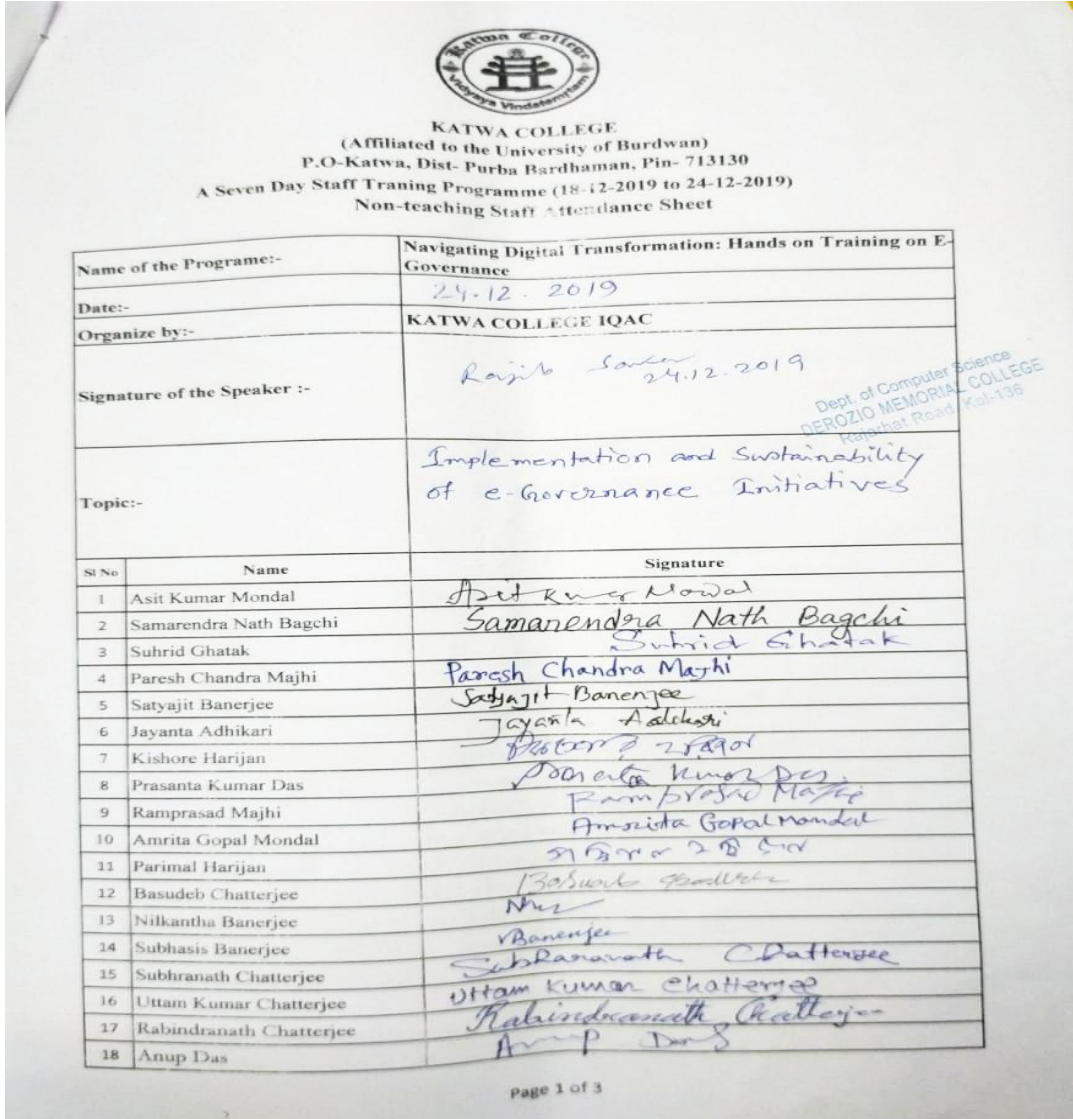 Katwa College
Vidyaya Vindatemrtam
KATWA COLLEGE
(Affiliated to the University of Burdwan)
P.O-Katwa, Dist- Purba Bardhaman, Pin- 713130
A Seven Day Staff Traning Programme (18-12-2019 to 24-12-2019)
Non-teaching Staff Attendance Sheet
Name of the Programe:- Navigating Digital Transformation: Hands on Training on E-
Governance
Date:- 24.12.2019
Organize by:- KATWA COLLEGE IQAC
Signature of the Speaker :- Rajib Sarkar
24.12.2019
Dept. of Computer Science
DEROZIO MEMORIAL COLLEGE
Rajarhat Road, Kol-136
Topic:- Implementation and Sustainability
of e-Governance Initiatives
Sl No Name Signature
1 Asit Kumar Mondal Asit Kumar Mondal
2 Samarendra Nath Bagchi Samarendra Nath Bagchi
3 Suhrid Ghatak Suhrid Ghatak
4 Paresh Chandra Majhi Paresh Chandra Majhi
5 Satyajit Banerjee Satyajit Banerjee
6 Jayanta Adhikari Jayanta Adhikari
7 Kishore Harijan
8 Prasanta Kumar Das Prasanta Kumar Das
9 Ramprasad Majhi Ramprasad Majhi
10 Amrita Gopal Mondal Amrita Gopal Mondal
11 Parimal Harijan
12 Basudeb Chatterjee
13 Nilkantha Banerjee
14 Subhasis Banerjee Banerjee
15 Subhranath Chatterjee Subhranath Chatterjee
16 Uttam Kumar Chatterjee Uttam Kumar Chatterjee
17 Rabindranath Chatterjee Rabindranath Chatterjee
18 Anup Das Anup Das
Page 1 of 3